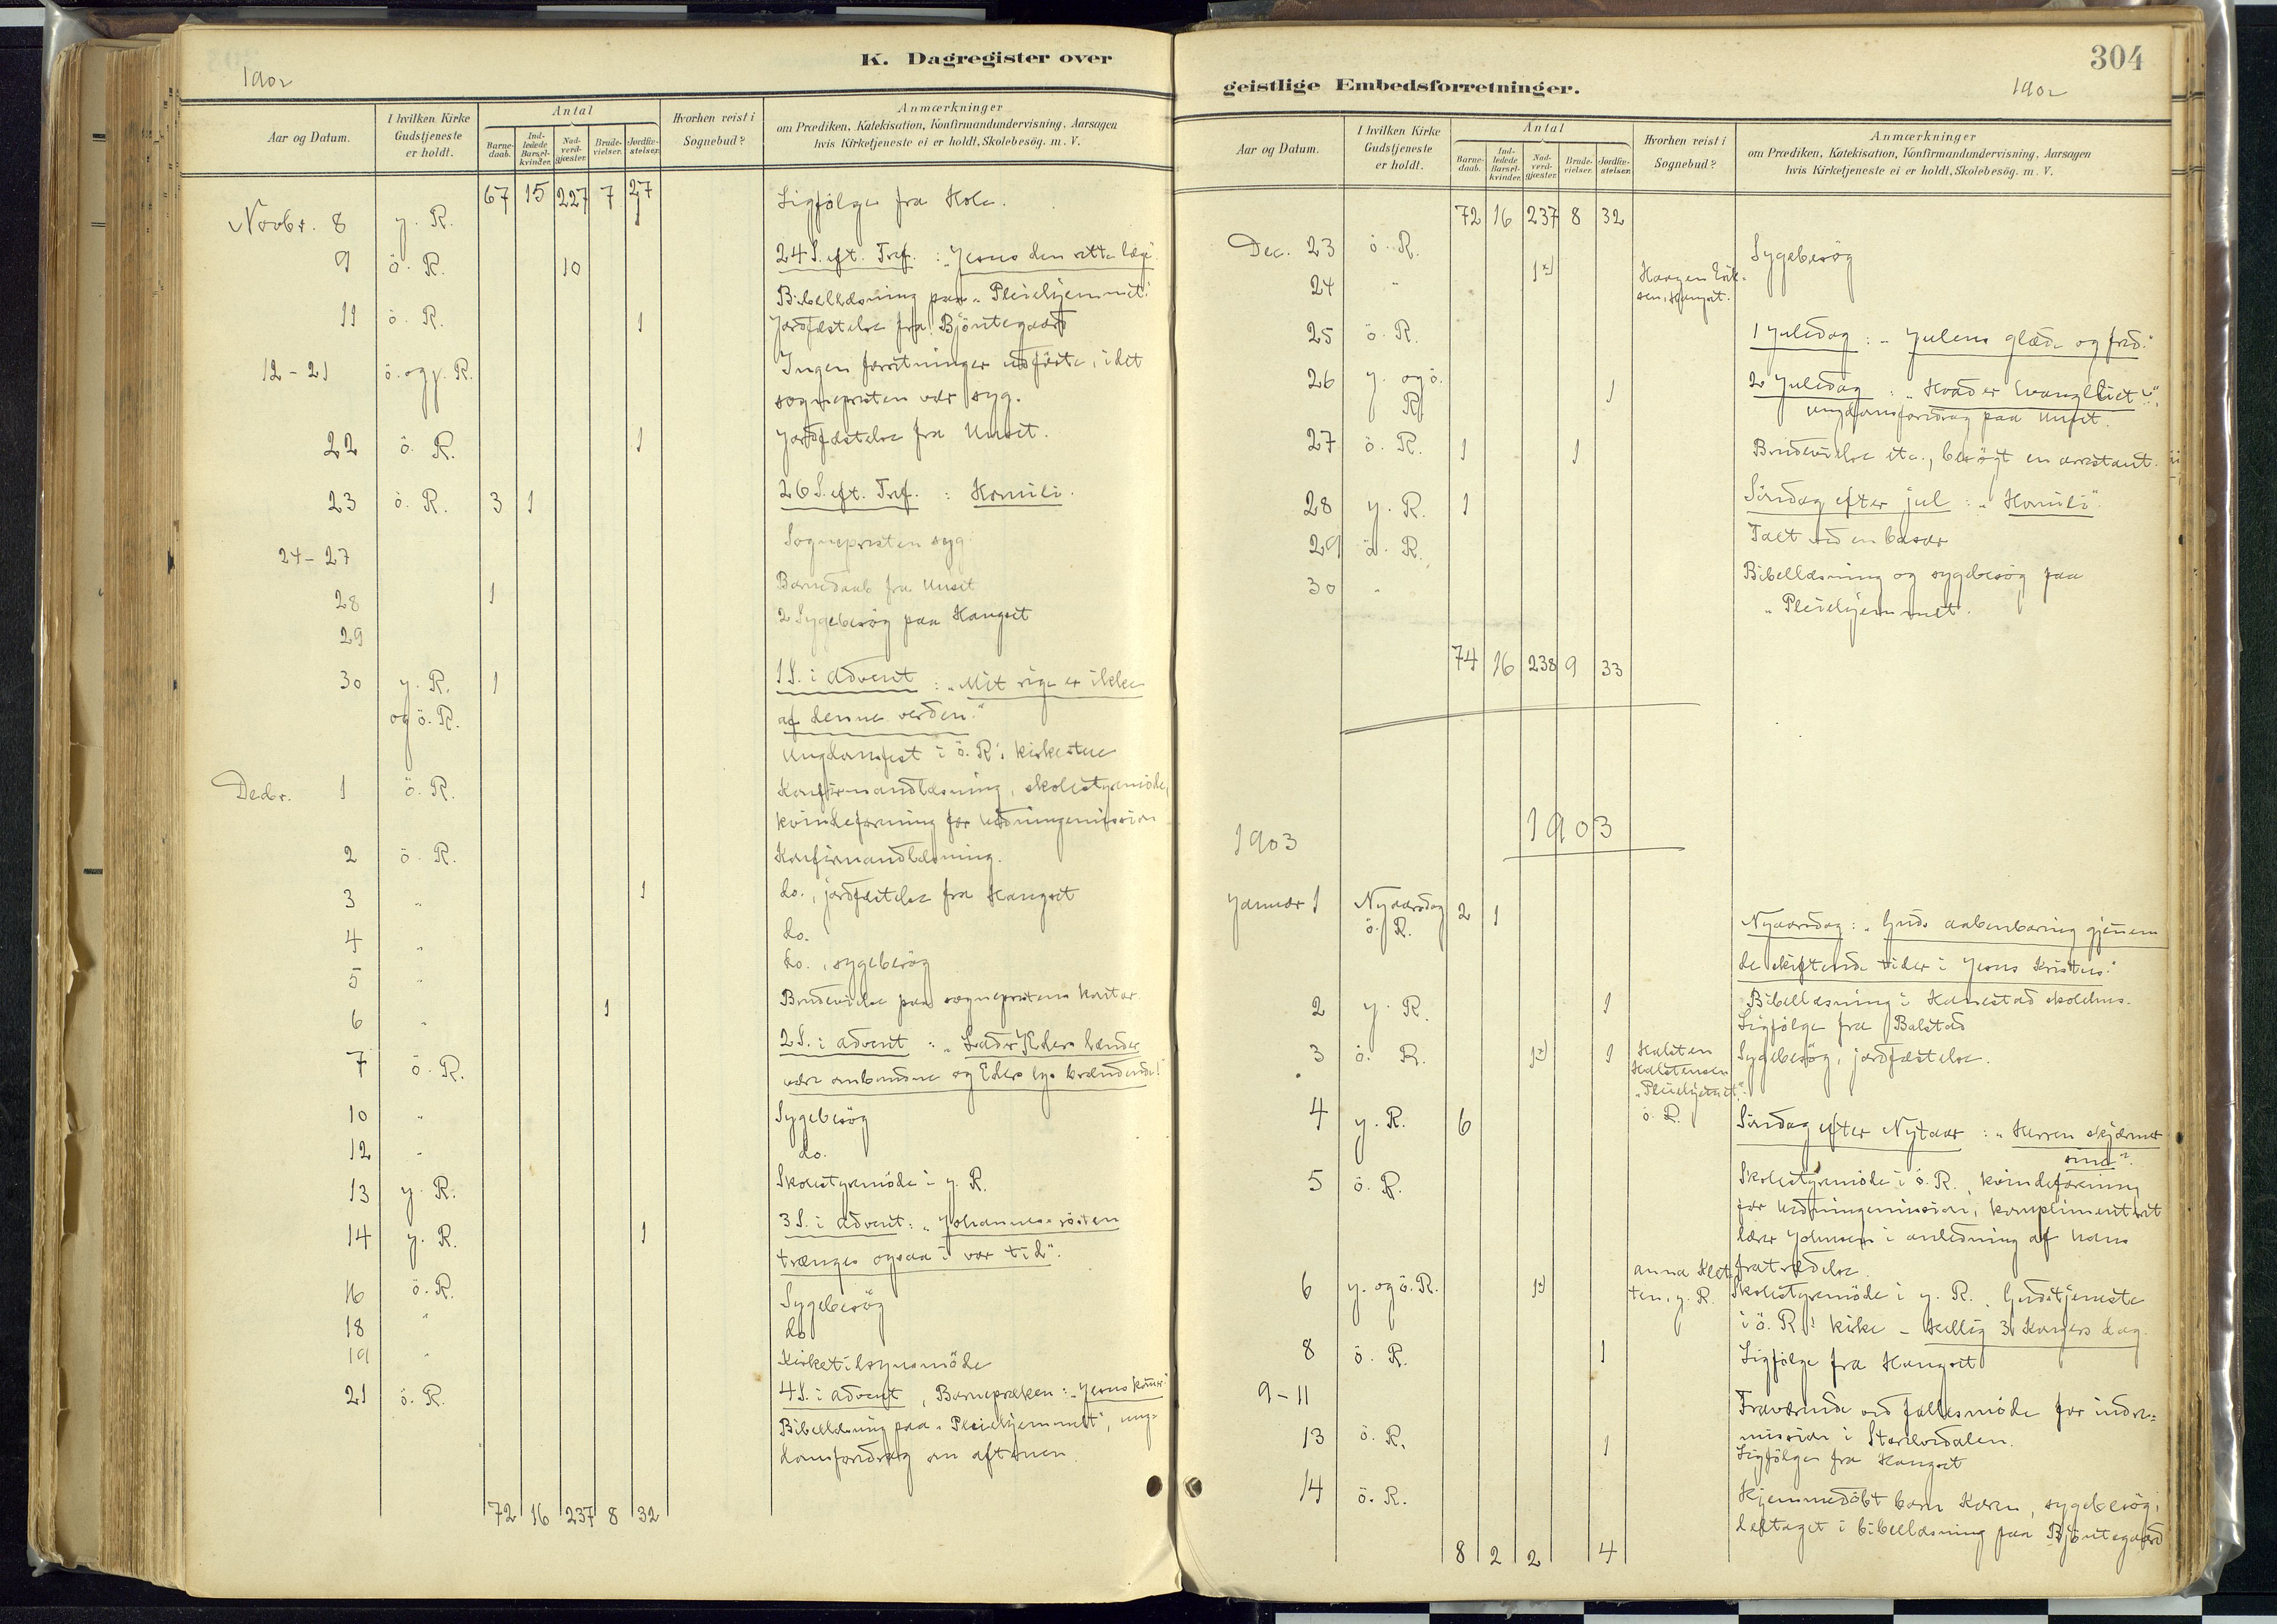 K. Dagregister over
1902
Aar og Datum.
I hvilken Kirke
Gudstjeneste
er holdt.
Antal
Barne-
daab.
Ind-
ledede
Barsel-
kvinder.
Nad-
verd-
gjæster.
Brude-
vielser.
Jordfæ-
stelser.
Hvorhen reist i
Sognebud?
Anmærkninger
om Prædiken, Katekisation, Konfirmandundervisning, Aarsagen
hvis Kirketjeneste ei er holdt, Skolebesög. m. V.
67 15 227 7 27
Novbr. 8 y. R. 1 Ligfölge fra Hole.
9 ö. R. 10 24 S. eft. Tref. : "Jesus den rette læge".
Bibellæsning paa "Pleiehjemmet".
11 ö. R. 1 Jordfæstelse fra Bjöntegaard
12-21 ö. og y. R. Ingen forretninger udförte, idet
sognepresten var syg.
22 ö. R. 1 Jordfæstelse fra Unset.
23 ö. R. 3 1 26 S. eft. Tref. : Homili.
24-27 Sognepresten syg.
28 1 Barnedaab fra Unset
29 2 Sygebesög paa Hangset
30 y. R. 1 1 S. i advent : "Mit rige er ikke
og ö. R. af denne verden."
Ungdomsfest i ö. R.s kirkestue
Decbr. 1 ö. R. Konfirmandlæsning, skolestyremöde,
kvindeforening for hedningemission
2 ö. R. Konfirmandlæsning.
3 " 1 do., jordfæstelse fra Hangset
4 " do.
5 " do., sygebesög
6 " 1 Brudevielse paa sogneprestens kontor
7 ö. R. 2 S. i advent : "Lader Eders lænder
være ombundne og Eders lys brændende!"
10 " Sygebesög
12 " do.
13 y. R. Skolestyremöde i y. R.
14 y. R. 1 3 S. i advent : "Johannes-rösten
trænges ogsaa i vor tid".
16 ö. R. Sygebesög
18 " do
19 " Kirketilsynsmöde
21 ö. R. 4 S. i advent, Barnepræken : "Jesus kommer"
Bibellæsning paa "Pleiehjemmet", ung-
domsforedrag om aftenen.
72 16 237 8 32
304
geistlige Embedsforretninger.
1902
Aar og Datum.
I hvilken Kirke
Gudstjeneste
er holdt.
Antal
Barne-
daab.
Ind-
ledede
Barsel-
kvinder.
Nad-
verd-
gjæster.
Brude-
vielser.
Jordfæ-
stelser.
Hvorhen reist i
Sognebud?
Anmærkninger
om Prædiken, Katekisation, Konfirmandundervisning, Aarsagen
hvis Kirketjeneste ei er holdt, Skolebesög. m. V.
72 16 237 8 32
Dec. 23 ö. R. Sygebesög
24 " 1x) Haagen Erik-
sen, Hangset.
25 ö. R. 1 Juledag : "Julens glæde og fred."
26 y. og ö. 1 2 Juledag : "Hvad er Evangeliet?",
R. ungdomsforedrag paa Unset.
27 ö. R. 1 1 Brudevielse etc., besögt en arrestant.
28 y. R. 1 Söndag efter jul : "Homili".
29 ö. R. Talt ved en basar
30 " Bibellæsning og sygebesög paa
"Pleiehjemmet".
74 16 238 9 33
1903 1903
Januar 1 Nyaarsdag 2 1 Nyaarsdag : "Guds aabenbaring gjennem
ö. R. de skiftende tider i Jesus Kristus."
2 y. R. 1 Bibellæsning i Hanestad skolehus.
Ligfölge fra Balstad
3 ö. R. 1x) 1 Halsten Sygebesög, jordfæstelse.
Halstensen
"Pleiehjemmet",
ö. R.
4 y. R. 6 Söndag efter Nytaar : "Herren skjærmer
sine".
5 ö. R. Skolestyremöde i ö. R., kvindeforening
for hedningemission, komplimentert
lærer Johnsen i anledning af hans
fratrædelse.
6 y. og ö. R. 1x) Anna Klet-
ten, y. R. Skolestyremöde i y. R., Gudstjeneste
i ö. R.s kirke - Hellig 3 Kongers dag.
8 ö. R. 1 Ligfölge fra Hangset
9-11 Fraværende ved fællesmöde for indre-
mission i Storelvdalen.
13 ö. R. 1 Ligfölge fra Hangset
14 ö. R. Hjemmedöbt barn Karen, sygebesög,
deltaget i bibellæsning paa Bjöntegaard
8 2 2 4